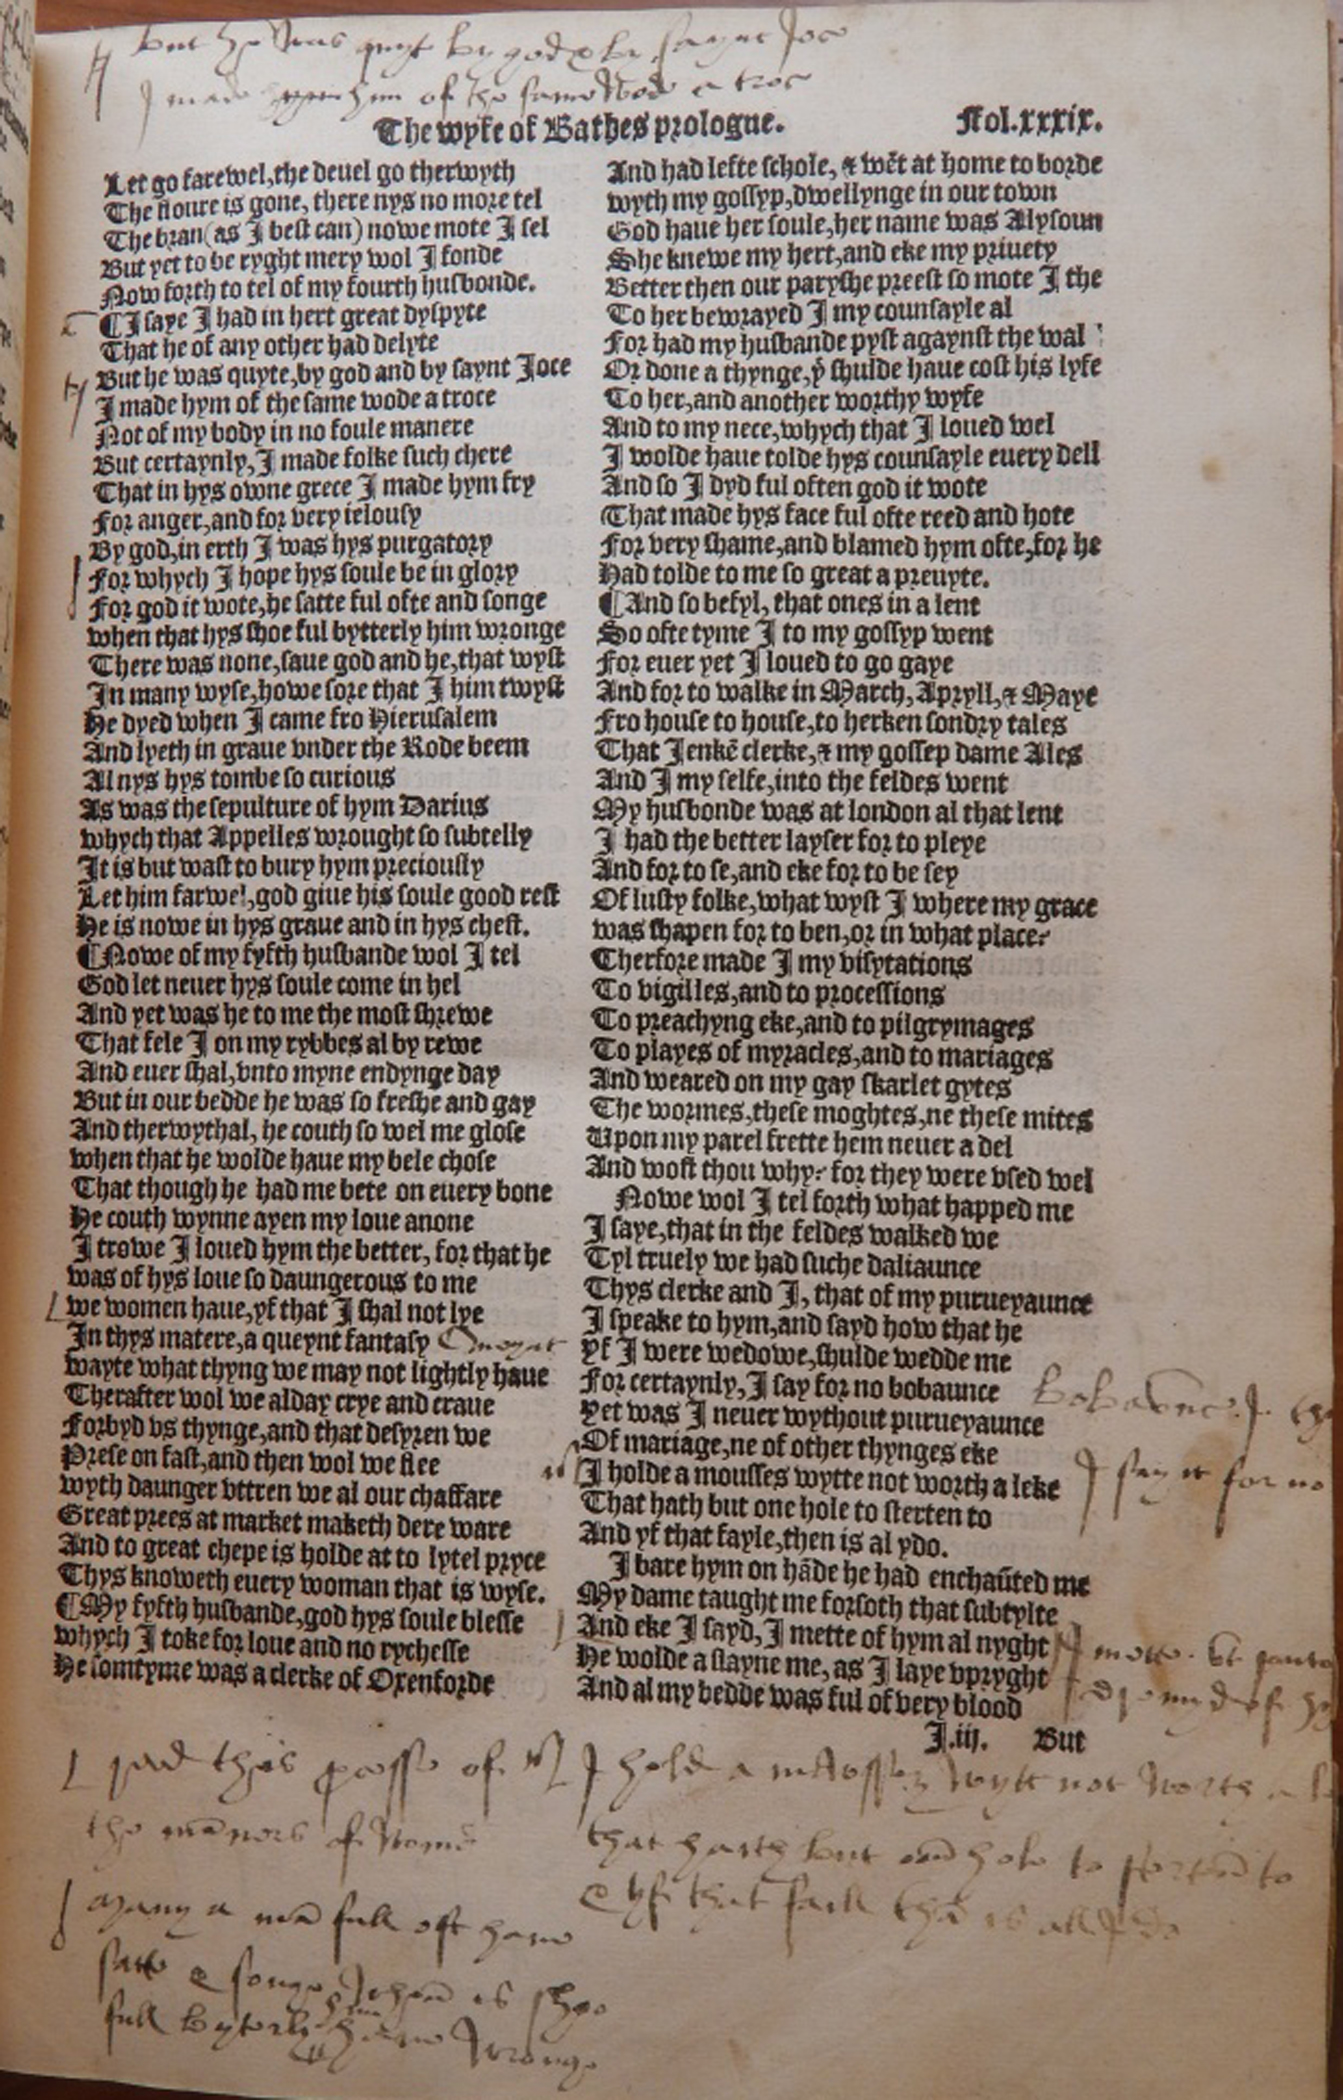 but he was quyt by god & by saynt Joce
I made hym of the same wode a troce
The wyfe of Bathes prologue. Fol.xxxix.
Let go farewel,the deuel go therwyth
The floure is gone, there nys no more tel
The bran(as I best can) nowe mote I sel
But yet to be ryght mery wol I fonde
Now forth to tel of my fourth husbonde.
¶I saye I had in hert great dyspyte
That he of any other had delyte
But he was quyte,by god and by saynt Joce
I made hym of the same wode a troce
Not of my body in no foule manere
But certaynly,I made folke such chere
That in hys owne grece I made hym fry
For anger,and for very ielousy
By god,in erth I was hys purgatory
For whych I hope hys soule be in glory
For god it wote,he satte ful ofte and songe
when that hys shoe ful bytterly him wronge
There was none,saue god and he,that wyst
In many wyse,howe sore that I him twyst
He dyed when I came fro Hierusalem
And lyeth in graue vnder the Rode beem
Al nys hys tombe so curious
As was the sepulture of hym Darius
whych that Appelles wrought so subtelly
It is but wast to bury hym preciously
Let him farwel,god giue his soule good rest
He is nowe in hys graue and in hys chest.
¶Nowe of my fyfth husbande wol I tel
God let neuer hys soule come in hel
And yet was he to me the most shrewe
That fele I on my rybbes al by rewe
And euer shal,vnto myne endynge day
But in our bedde he was so freshe and gay
And therwythal, he couth so wel me glose
when that he wolde haue my bele chose
That though he had me bete on euery bone
He couth wynne ayen my loue anone
I trowe I loued hym the better, for that he
was of hys loue so daungerous to me
we women haue,yf that I shal not lye
In thys matere,a queynt fantasy
wayte what thyng we may not lightly haue
Therafter wol we alday crye and craue
Forbyd vs thynge,and that desyren we
Prese on fast,and then wol we flee
wyth daunger vttren we al our chaffare
Great prees at market maketh dere ware
And to great chepe is holde at to lytel pryce
Thys knoweth euery woman that is wyse.
¶My fyfth husbande,god hys soule blesse
whych I toke for loue and no rychesse
He somtyme was a clerke of Oxenforde
And had lefte schole, & wēt at home to borde
wyth my gossyp,dwellynge in our town
God haue her soule,her name was Alysoun
She knewe my hert,and eke my priuety
Better then our paryshe preest so mote I the
To her bewrayed I my counsayle al
For had my husbande pyst agaynst the wal
Or done a thynge,yͭ shulde haue cost his lyfe
To her,and another worthy wyfe
And to my nece,whych that I loued wel
I wolde haue tolde hys counsayle euery dell
And so I dyd ful often god it wote
That made hys face ful ofte reed and hote
For very shame,and blamed hym ofte,for he
Had tolde to me so great a preuyte.
¶And so befyl, that ones in a lent
So ofte tyme I to my gossyp went
For euer yet I loued to go gaye
And for to walke in March, Apryll,& Maye
Fro house to house,to herken sondry tales
That Jenkē clerke,& my gossep dame Ales
And I my selfe,into the feldes went
My husbonde was at london al that lent
I had the better layser for to pleye
And for to se,and eke for to be sey
Of lusty folke,what wyst I where my grace
was shapen for to ben,or in what place?
Therfore made I my visytations
To vigilles,and to processions
To preachyng eke,and to pilgrymages
To playes of myracles,and to mariages
And weared on my gay skarlet gytes
The wormes,these moghtes,ne these mites
Upon my parel frette hem neuer a del
And wost thou why? for they were vsed wel
Nowe wol I tel forth what happed me
I saye,that in the feldes walked we
Tyl truely we had suche daliaunce
Thys clerke and I, that of my purueyaunce
I speake to hym,and sayd how that he
Yf I were wedowe,shulde wedde me
For certaynly,I say for no bobaunce
Yet was I neuer wythout purueyaunce
Of mariage,ne of other thynges eke
I holde a mousses wytte not worth a leke
That hath but one hole to sterten to
And yf that fayle,then is al ydo.
I bare hym on hāde he had enchaūted me
My dame taught me forsoth that subtylte
And eke I sayd, I mette of hym al nyght
He wolde a slayne me, as I laye vpryght
And al my bedde was ful of very blood
J.iij. But
I say it for no
I mette
rad this passe of
the māners of womē
many a mā full oft hawe
satt & songe whan is shoo
full bytterly hym wronge
I hold a mousses wytt not worth a
that hath but oon hole to sterten to
& yf that faile thā is all ydo